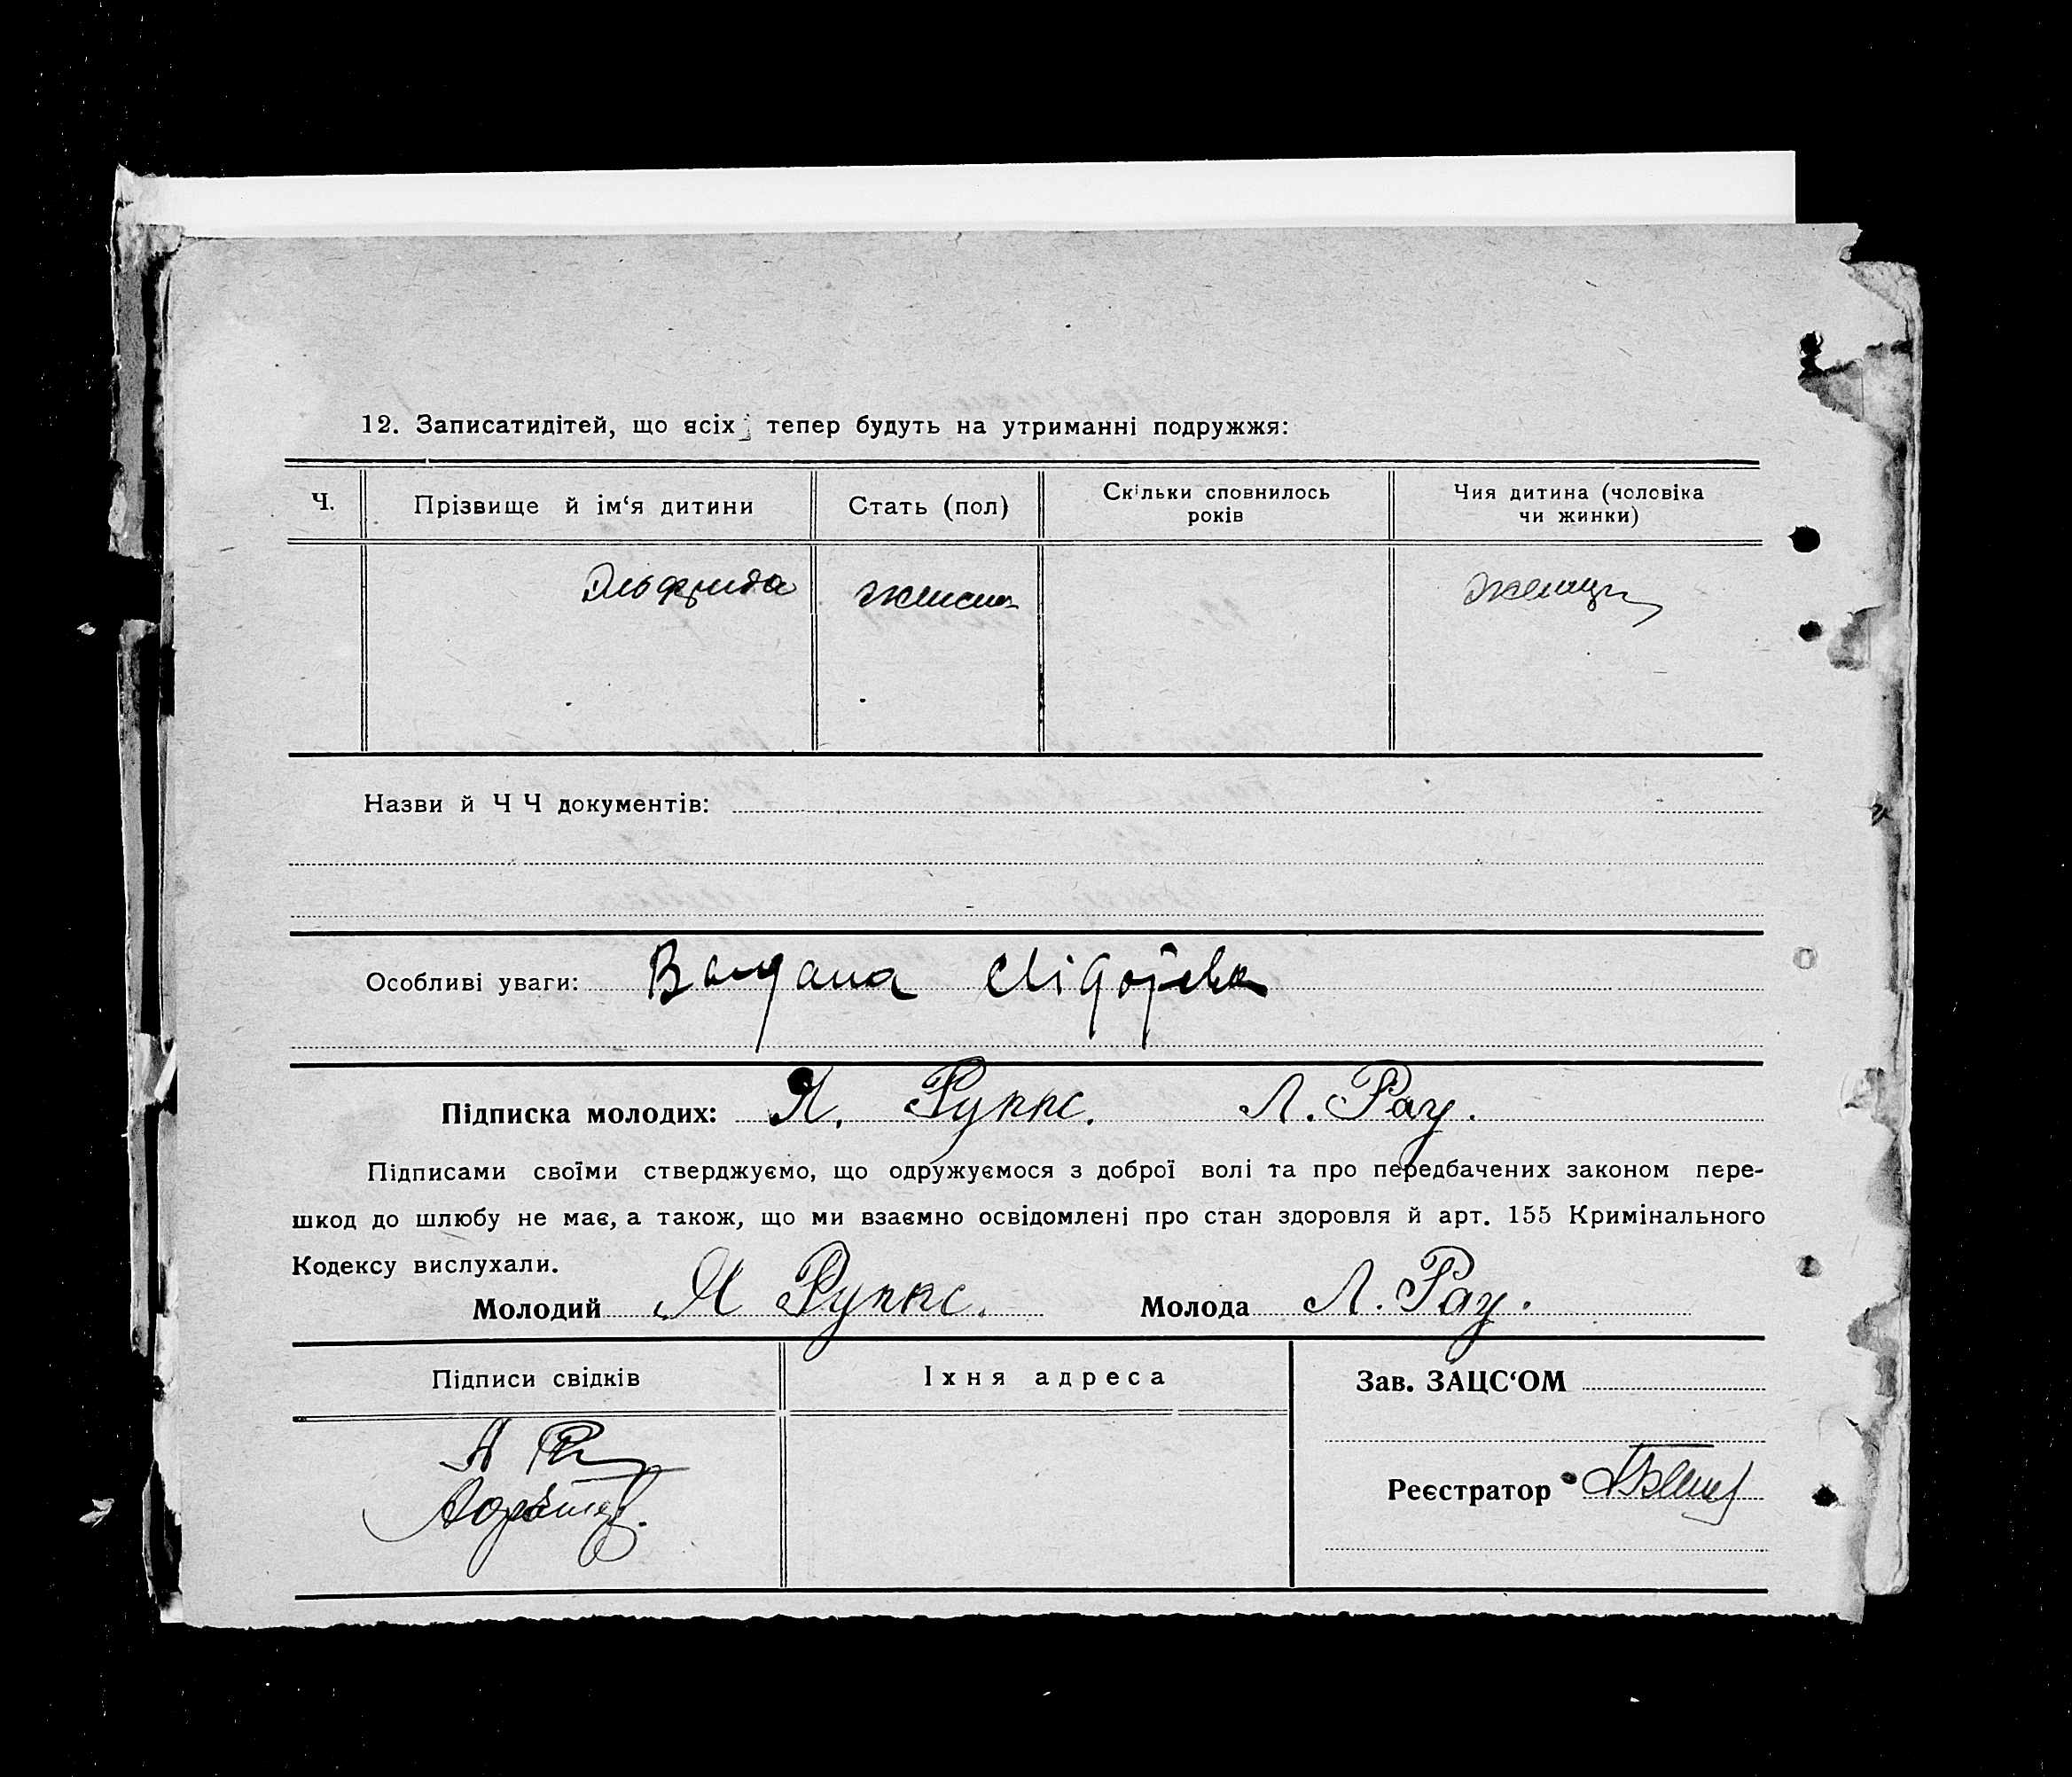 12. Записатидітей, що всіх тепер будуть на утриманні подружжя:
Ч. Прізвище й ім‘я дитини Стать (пол) Скільки сповнилось років Чия дитина (чоловіка чи жинки)
Эльфрида женска
Назви й Ч Ч документів:
Особливі уваги: Видана
Підписка молодих: Я. Руппс. Л. Рау.
Підписами своїми стверджуємо, що одружуємося з доброї волі та про передбачених законом пере-
шкод до шлюбу не має, а також, що ми взаємно освідомлені про стан здоровля й арт. 155 Кримінального
Кодексу вислухали.
Молодий Я Руппс. Молода Л. Рау.
Підписи свідків Іхня адреса Зав. ЗАЦС‘ОМ
А
Реєстратор